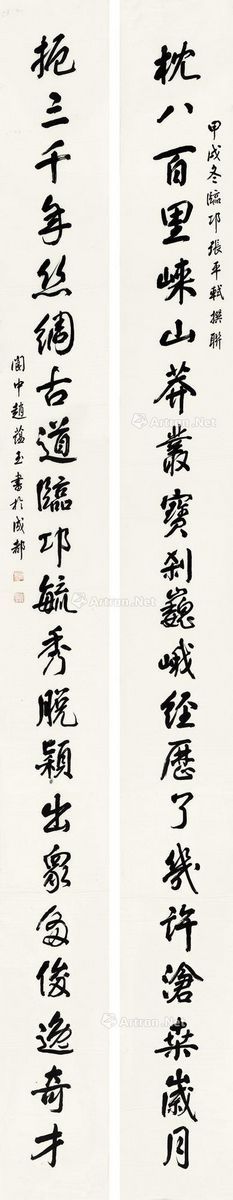 甲戌冬臨邛張平軾撰聯
枕八百里崍山莽叢寶刹巍峨經歷了幾許滄桑歲月
扼三千年絲綢古道臨邛毓秀脫穎出眾多俊逸奇才
閬中趙蘊玉書於成都